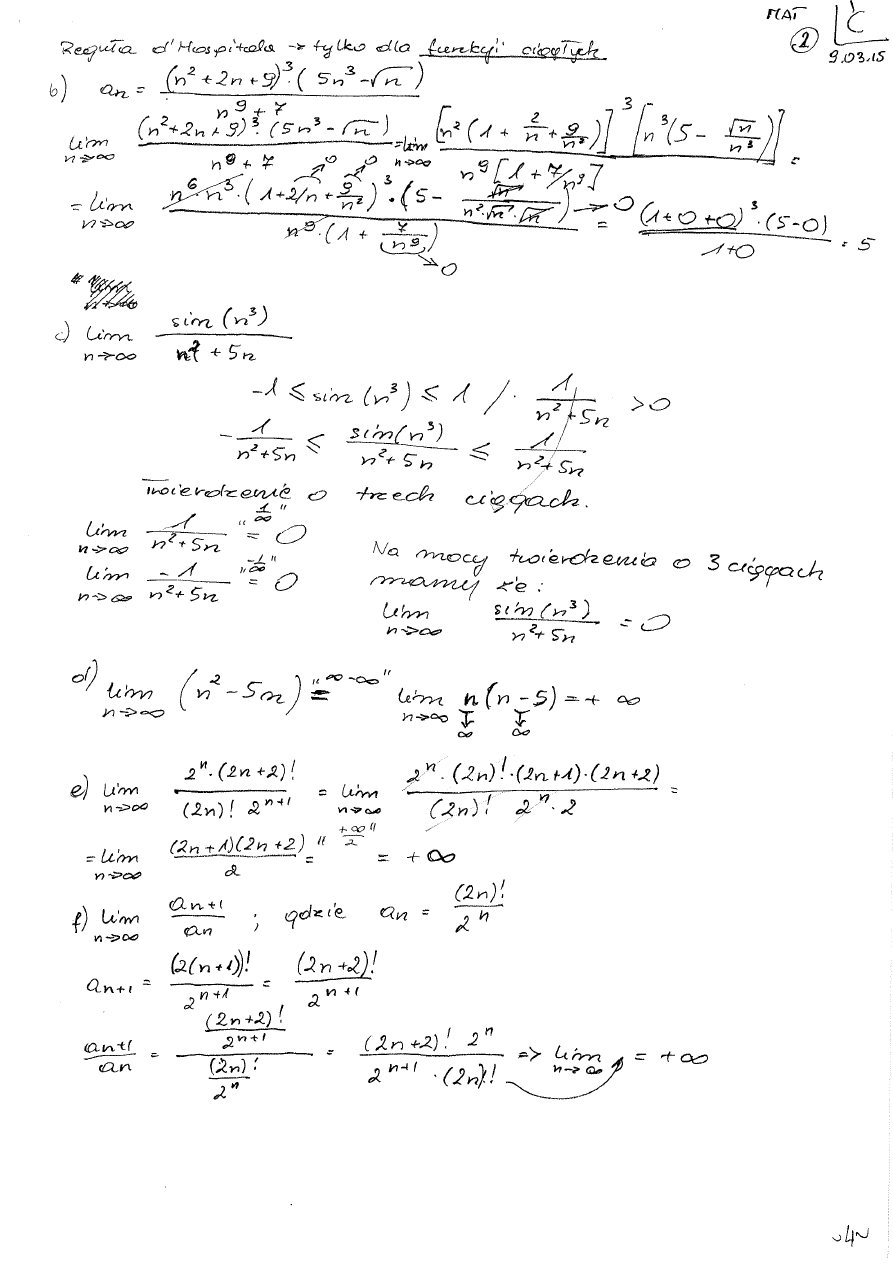 MAT Ć
2 9.03.15
Reguła d'Hospitala → tylko dla funkcji ciągłych
b) an = (n² + 2n + 9)³·(5n³ - √n) / n⁹ + 7
lim n→∞ (n² + 2n + 9)³·(5n³ - √n) / n⁹ + 7 = lim n→∞ [n²(1 + 2/n + 9/n²)]³ [n³(5 - √n/n³)] / n⁹[1 + 7/n⁹] =
= lim n→∞ n⁶·n³·(1 + 2/n + 9/n²)³·(5 - √n/(n²·√n·√n)) → 0 / n⁹·(1 + 7/n⁹) → 0 = (1+0+0)³·(5-0) / 1+0 = 5
c) lim n→∞ sin(n³) / n² + 5n
-1 ≤ sin(n³) ≤ 1 /· 1/(n² + 5n) > 0
- 1/(n²+5n) ≤ sin(n³)/(n²+5n) ≤ 1/(n²+5n)
Twierdzenie o trzech ciągach.
lim n→∞ 1/(n²+5n) "1/∞" = 0
lim n→∞ -1/(n²+5n) "-1/∞" = 0
Na mocy twierdzenia o 3 ciągach
mamy że:
lim n→∞ sin(n³)/(n²+5n) = 0
d) lim n→∞ (n² - 5n) = "∞-∞" lim n→∞ n(n-5) = + ∞
↓∞ ↓∞
e) lim n→∞ 2ⁿ·(2n+2)! / (2n)! 2ⁿ⁺¹ = lim n→∞ 2ⁿ·(2n)!·(2n+1)·(2n+2) / (2n)! 2ⁿ·2 =
= lim n→∞ (2n+1)(2n+2) / 2 = "+∞/2" = +∞
f) lim n→∞ an+1/an ; gdzie an = (2n)!/2ⁿ
an+1 = (2(n+1))!/2ⁿ⁺¹ = (2n+2)!/2ⁿ⁺¹
an+1/an = (2n+2)!/2ⁿ⁺¹ / (2n)!/2ⁿ = (2n+2)! 2ⁿ / 2ⁿ⁺¹·(2n)! => lim n→∞ = +∞
~4~